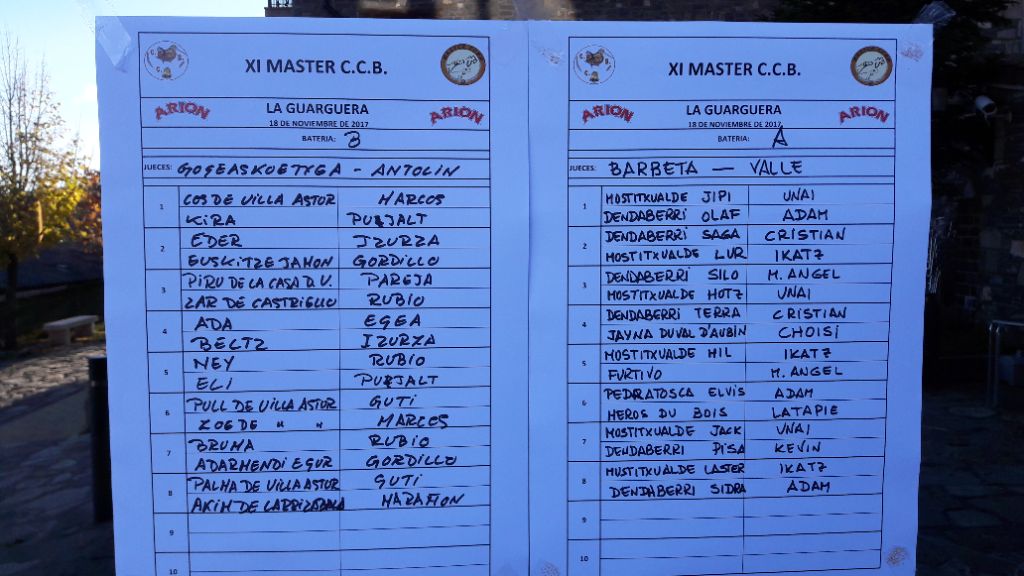 XI MASTER C.C.B.
ARION LA GUARGUERA ARION
18 DE NOVIEMBRE DE 2017
BATERIA: B
JUECES: GOGEASKOETXEA - ANTOLIN
1 COS DE VILLA ASTUR MARCOS
KIRA PUJALT
2 EDER IZURZA
EUSKITZE JAMON GORDILLO
3 PIRU DE LA CASA D.V. PAREJA
ZAR DE CASTRIELLO RUBIO
4 ADA EGEA
BELTZ IZURZA
5 NEY RUBIO
ELI PUJALT
6 PULL DE VILLA ASTUR GUTI
ZOE DE " " MARCOS
7 BRUMA RUBIO
ADARMENDI EGUR GORDILLO
8 PALMA DE VILLA ASTUR GUTI
AKIM DE LARRIZABALA MARAÑON
9
10
XI MASTER C.C.B.
ARION LA GUARGUERA ARION
18 DE NOVIEMBRE DE 2017
BATERIA: A
JUECES: BARBETA — VALLE
1 MOSTITXUALDE JIPI UNAI
DENDABERRI OLAF ADAM
2 DENDABERRI SAGA CRISTIAN
MOSTITXUALDE LUR IKATZ
3 DENDABERRI SILO M. ANGEL
MOSTITXUALDE HOTZ UNAI
4 DENDABERRI TERRA CRISTIAN
JAYNA DUVAL D'AUBIN CHOISI
5 MOSTITXUALDE MIL IKATZ
FURTIVO M. ANGEL
6 PEDRATOSCA ELVIS ADAM
HEROS DU BOIS LATAPIE
7 MOSTITXUALDE JACK UNAI
DENDABERRI PISA KEVIN
8 MUSTITXUALDE LASTER IKATZ
DENDABERRI SIDRA ADAM
9
10